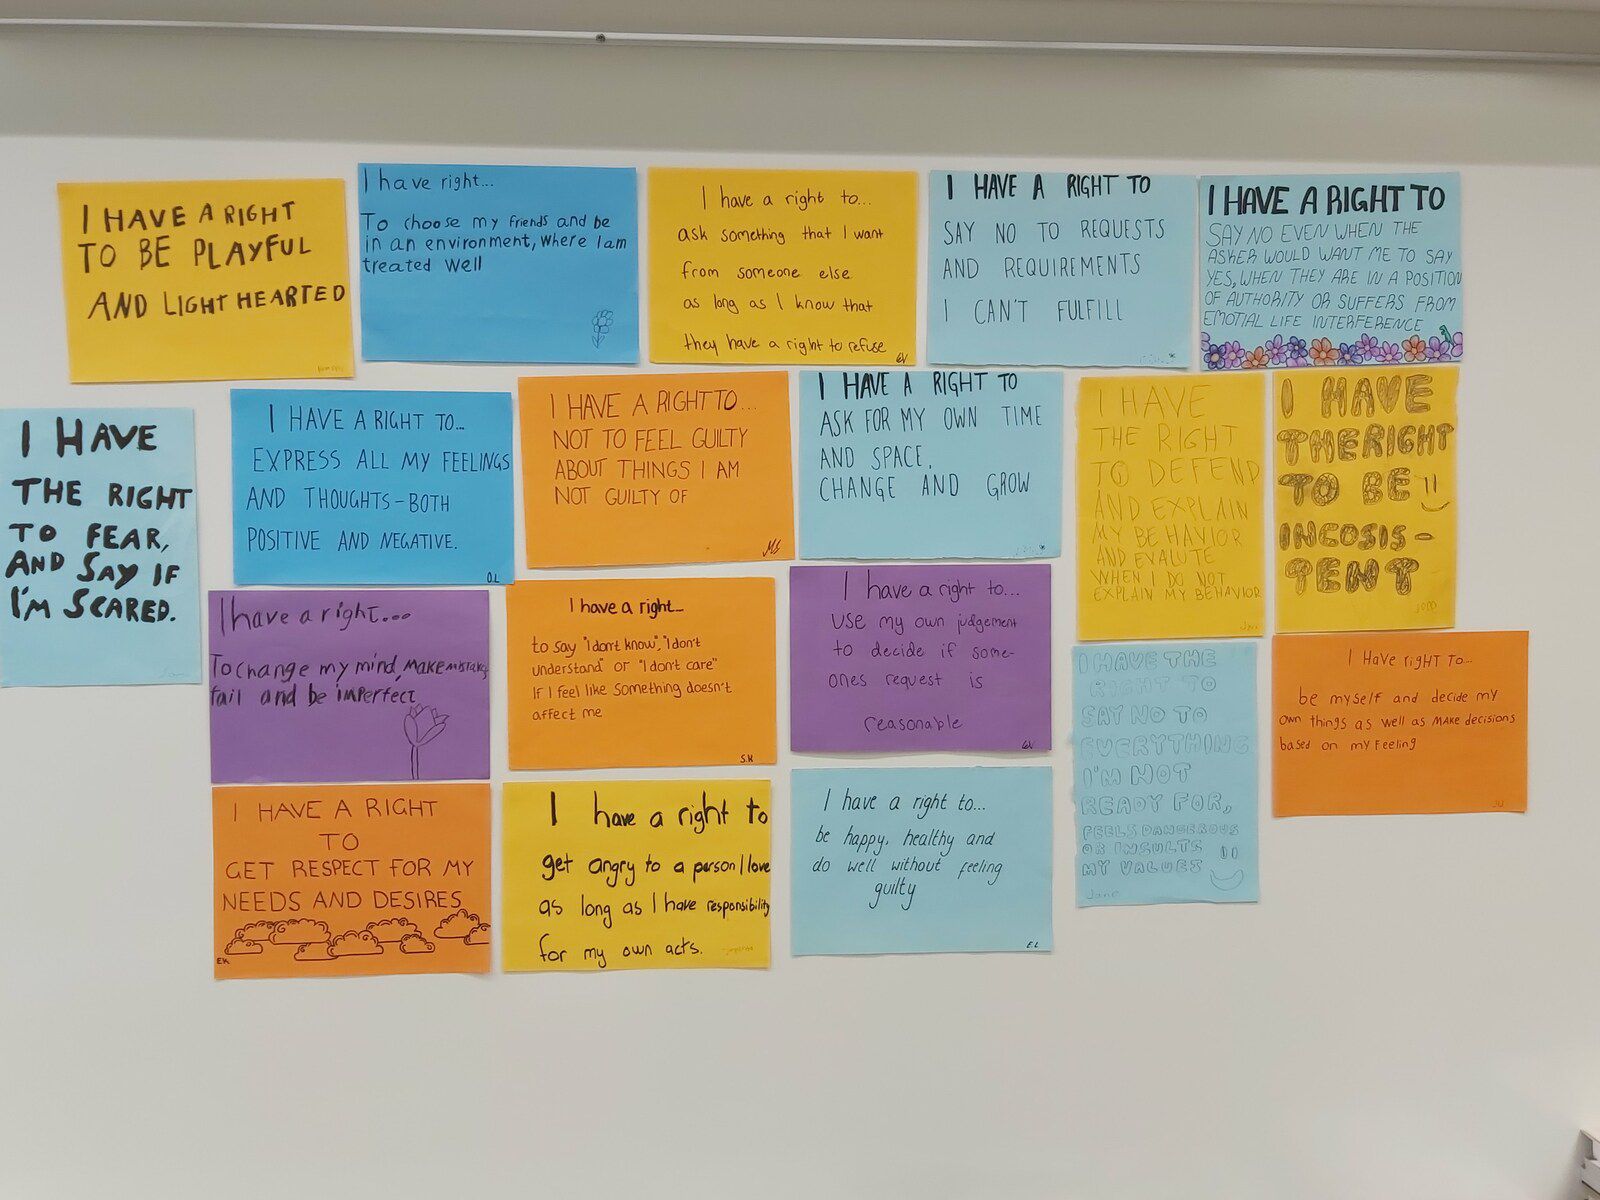 I HAVE A RIGHT
TO BE PLAYFUL
AND LIGHT HEARTED
I have right...
To choose my friends and be
in an environment, where I am
treated well
I have a right to...
ask something that I want
from someone else
as long as I know that
they have a right to refuse
EV
I HAVE A RIGHT TO
SAY NO TO REQUESTS
AND REQUIREMENTS
I CAN'T FULFILL
I HAVE A RIGHT TO
SAY NO EVEN WHEN THE
ASKER WOULD WANT ME TO SAY
YES, WHEN THEY ARE IN A POSITION
OF AUTHORITY OR SUFFERS FROM
EMOTIAL LIFE INTERFERENCE
I HAVE
THE RIGHT
TO FEAR,
AND SAY IF
I'M SCARED.
I HAVE A RIGHT TO...
EXPRESS ALL MY FEELINGS
AND THOUGHTS - BOTH
POSITIVE AND NEGATIVE.
O.L
I HAVE A RIGHT TO...
NOT TO FEEL GUILTY
ABOUT THINGS I AM
NOT GUILTY OF
MS
I HAVE A RIGHT TO
ASK FOR MY OWN TIME
AND SPACE,
CHANGE AND GROW
I HAVE
THE RIGHT
TO DEFEND
AND EXPLAIN
MY BEHAVIOR
AND EVALUTE
WHEN I DO NOT
EXPLAIN MY BEHAVIOR
Jane
I HAVE
THE RIGHT
TO BE
INCOSIS-
TENT
I have a right...
To change my mind, MAKE mistakes
fail and be imperfect
I have a right...
to say "I don't know", "I don't
understand" or "I don't care"
If I feel like something doesn't
affect me
S.H
I have a right to...
use my own judgement
to decide if some-
ones request is
reasonable
EV
I HAVE THE
RIGHT TO
SAY NO TO
EVERYTHING
I'M NOT
READY FOR,
FEELS DANGEROUS
OR INSULTS
MY VALUES
Jane
I Have right To...
be myself and decide my
own things as well as MAKE decisions
based on my Feeling
I HAVE A RIGHT
TO
GET RESPECT FOR MY
NEEDS AND DESIRES
EK
I have a right to
get angry to a person I love
as long as I have responsibility
for my own acts.
I have a right to...
be happy, healthy and
do well without feeling
guilty
E.L